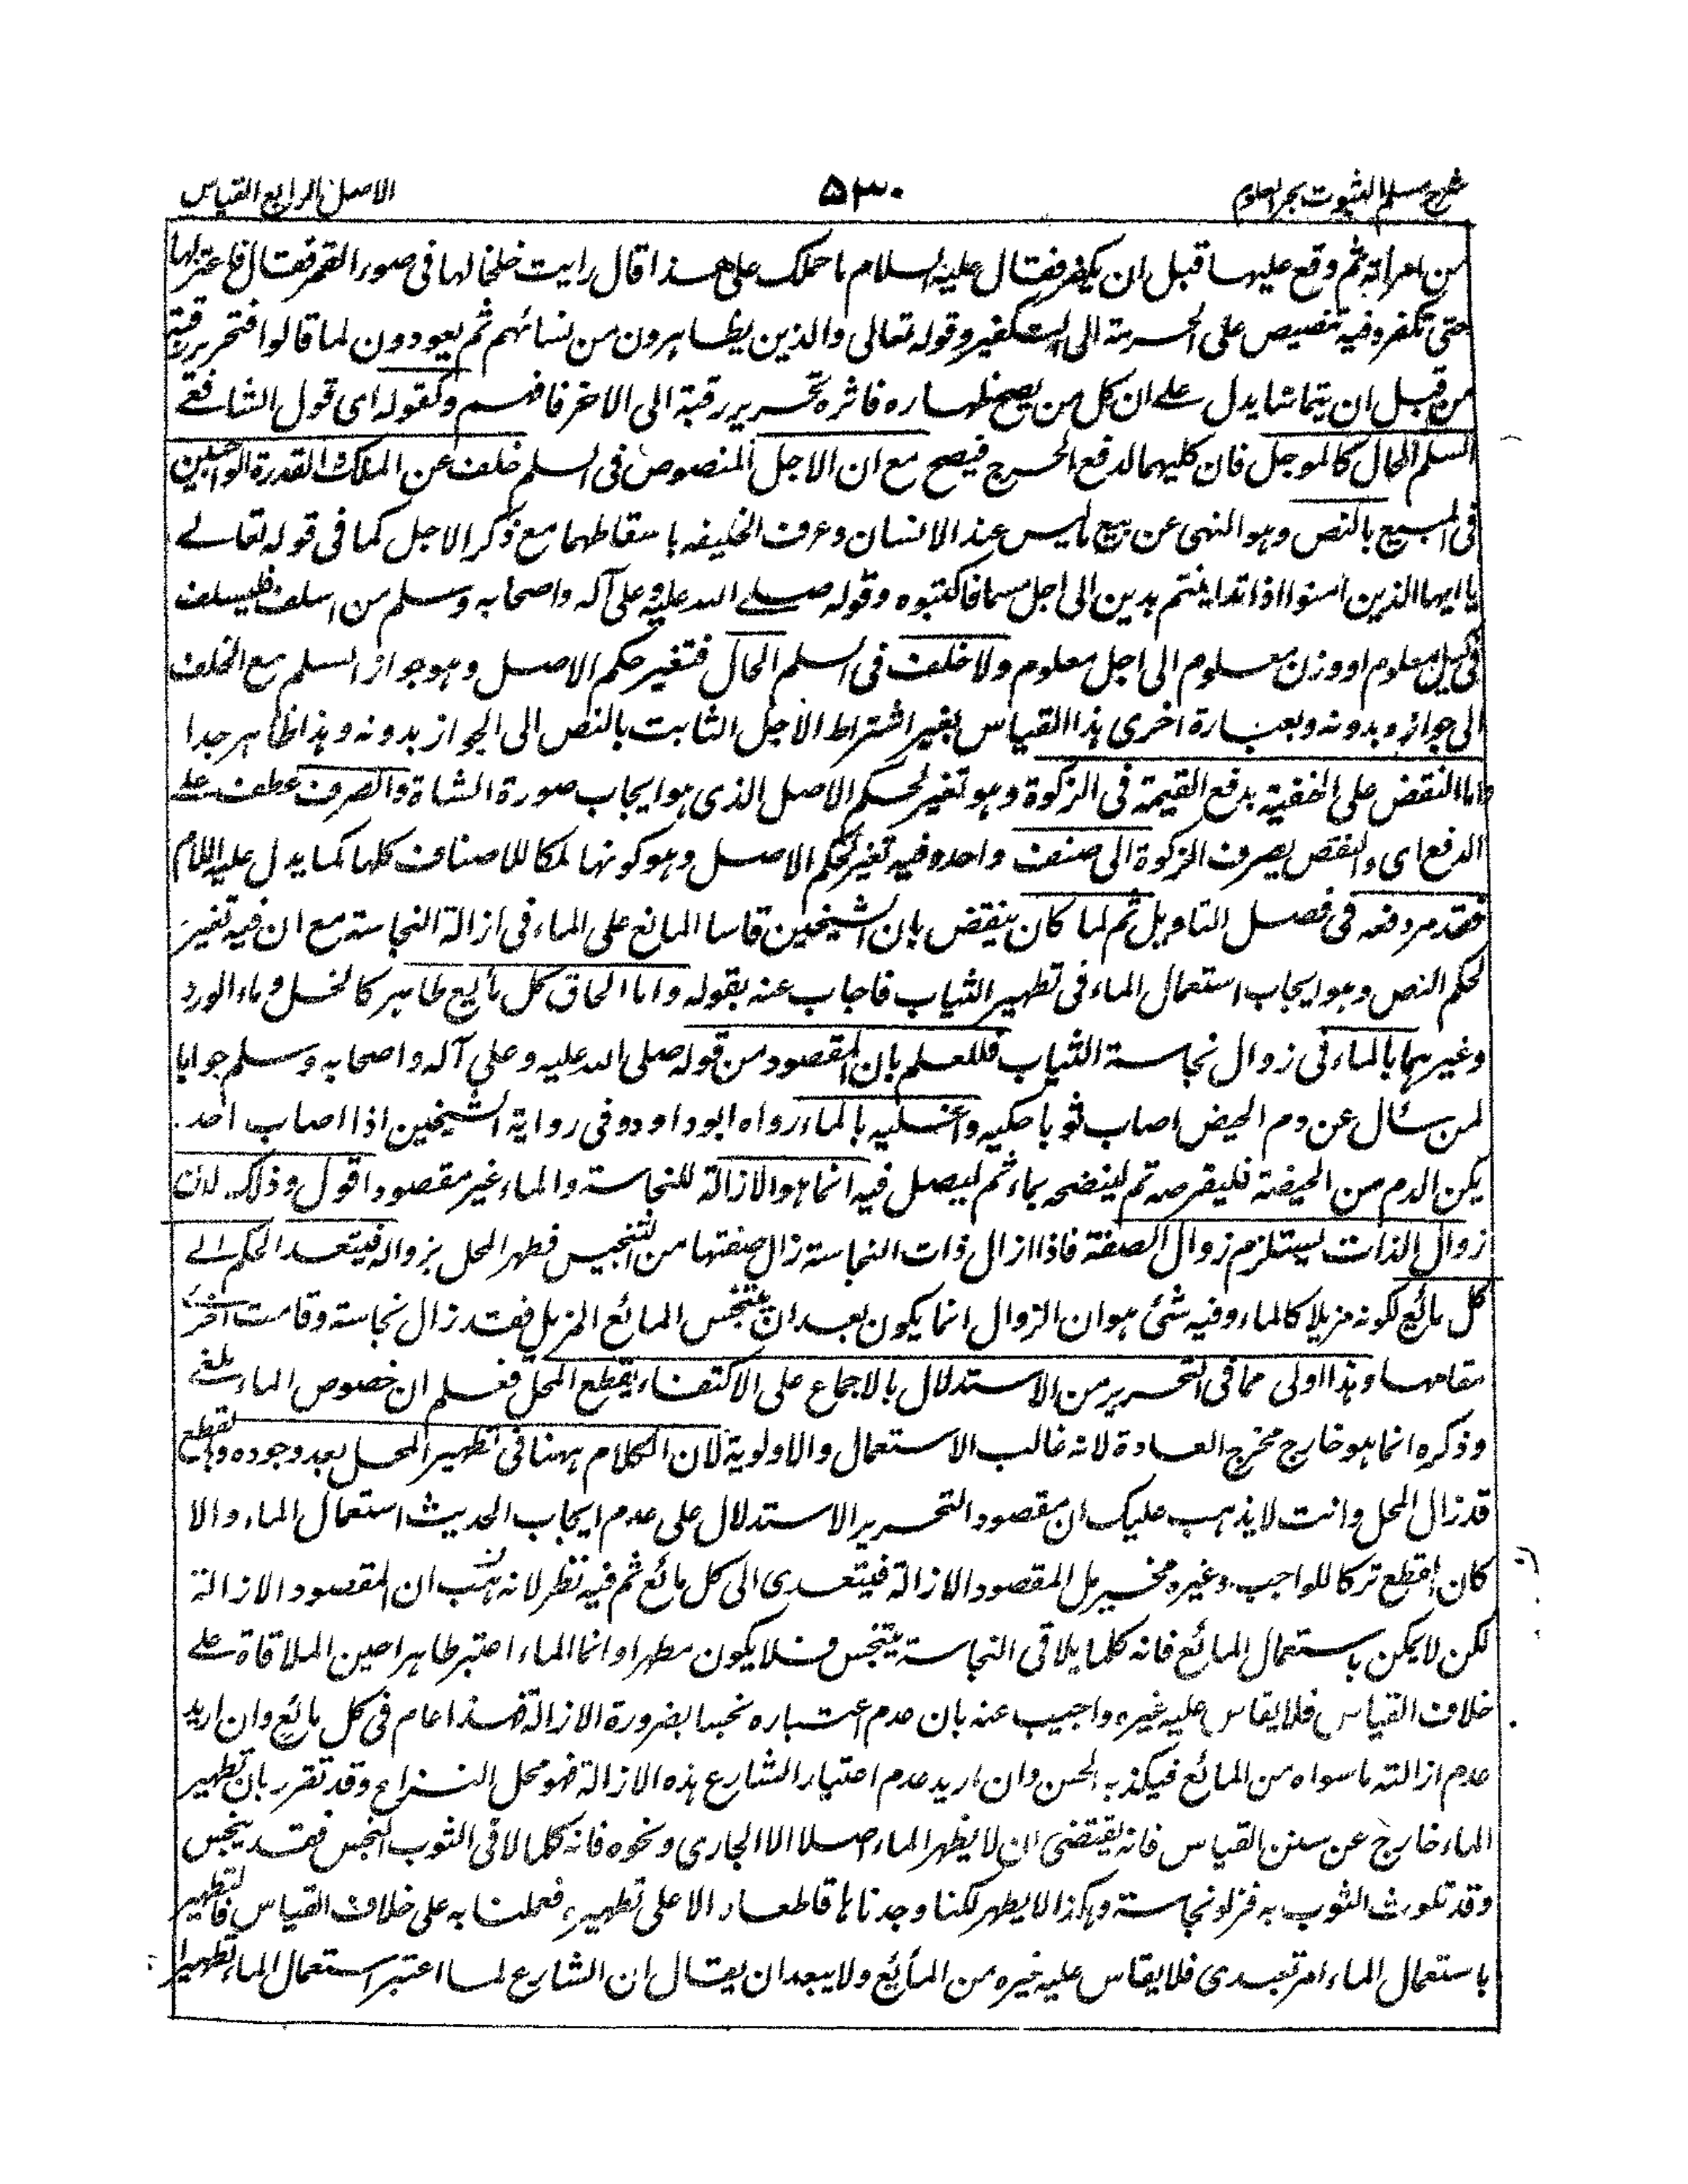 شرح مسلم الثبوت بحر العلوم
۵۳۰
الاصل الرابع القیاس
من امرأته ثم وقع علیها قبل ان یکفر فقال علیه السلام ما حملک علی هذا قال رایت خلخالها فی ضوء القمر فقال فاعتزلها
حتی تکفر وفیه تنصیص علی الحرمة الی التکفیر وقوله تعالی والذین یظاهرون من نسائهم ثم یعودون لما قالوا فتحریر رقبة
من قبل ان یتماسا یدل علی ان کل من یصح ظهاره فاثره تحریر رقبة الی الاخر فافهم وکقوله ای قول الشافعی
السلم الحال کالموجل فان کلیهما لدفع الحرج فیصح مع ان الاجل المنصوص فی السلم خلف عن الملک والقدرة الواجبین
فی المبیع بالنص وهو النهی عن بیع ما لیس عند الانسان وعرف الخلیفه باسقاطهما مع ذکر الاجل کما فی قوله تعالے
یا ایها الذین امنوا اذا تداینتم بدین الی اجل مسما فاکتبوه وقوله صلے الله علیه وعلی آله واصحابه وسلم من اسلف فلیسلف
فی کیل معلوم او وزن معلوم الی اجل معلوم ولا خلف فی السلم الحال فتغیر حکم الاصل وهو جواز السلم مع الخلف
الی جوازه بدونه وبعبارة اخری هذا القیاس یغیر اشتراط الاجل الثابت بالنص الی الجواز بدونه وهذا ظاهر جدا
واما النقض علی الحنفیة بدفع القیمة فی الزکوة وهو تغییر لحکم الاصل الذی هو ایجاب صورة الشاة والصرف عطف علے
الدفع ای والنقض بصرف الزکوة الی صنف واحد وفیه تغیر لحکم الاصل وهو کونها ملکا للاصناف کلها کما یدل علیه اللام
فقد مر دفعه فی فصل التاویل ثم لما کان ینقض بان الشیخین قاسا المائع علی الماء فی ازالة النجاسة مع ان فیه تغییر
لحکم النص وهو ایجاب استعمال الماء فی تطهیر الثیاب فاجاب عنه بقوله واما الحاق کل مائع طاهر کالخل وماء الورد
وغیرهما بالماء فی زوال نجاسة الثیاب فللعلم بان المقصود من قوله صلی الله علیه وعلی آله واصحابه وسلم جوابا
لمن سئال عن دم الحیض اصاب ثوبا حکیه واغسلیه بالماء رواه ابوداود وفی روایة الشیخین اذا اصاب احد
یکن الدم من الحیضة فلیقرصه ثم لینضحه بماء ثم لیصل فیه انما هو الازالة للنجاسة والماء غیر مقصود اقول وذلک لان
زوال الذات یستلزم زوال الصفة فاذا ازال ذات النجاسة زال صفتها من التنجیس فطهر المحل بزواله فیتعد الحکم الے
کل مائع لکونه مزیلا کالماء وفیه شئ هو ان الزوال انما یکون بعد ان یتنجس المائع المزیل فقد زال نجاسة وقامت اخری
مقامها وهذا اولی مما فی التحریر من الاستدلال بالاجماع علی الاکتفاء بقطع المحل فعلم ان خصوص الماء ملغے
وذکره انما هو خارج مخرج العادة لانه غالب الاستعمال والاولویة لان الکلام ههنا فی تطهیر المحل بعد وجوده وبالقطع
قد زال المحل وانت لا یذهب علیک ان مقصود التحریر الاستدلال علی عدم ایجاب الحدیث استعمال الماء والا
کان القطع ترکا للواجب وغیره مخیر بل المقصود الازالة فیتعدی الی کل مائع ثم فیه نظر لانه هب ان المقصود الازالة
لکن لا یمکن باستعمال المائع فانه کلما یلاقی النجاسة یتنجس فلا یکون مطهرا وانما الماء اعتبر طاهرا حین الملاقاة علے
خلاف القیاس فلا یقاس علیه غیره واجیب عنه بان عدم اعتباره نجسا بضرورة الازالة فهذا عام فی کل مائع وان ارید
عدم ازالته ما سواه من المائع فیکذبه الحس وان ارید عدم اعتبار الشارع هذه الازالة فهو محل النزاع وقد تقرر بان تطهیر
الماء خارج عن سنن القیاس فانه یقتضی ان لا یطهر الماء اصلا الا الجاری ونحوه فانه کلما لاقی الثوب النجس فقد ینجس
وقد تکورث الثوب به نجاسة وهکذا الا یطهر لکنا وجدنا قاطعا دالا علی تطهیره فعملنا به علی خلاف القیاس فالتطهیر
باستعمال الماء امر تعبدی فلا یقاس علیه غیره من المائع ولا یبعد ان یقال ان الشارع لما اعتبر استعمال الماء تطهیرا